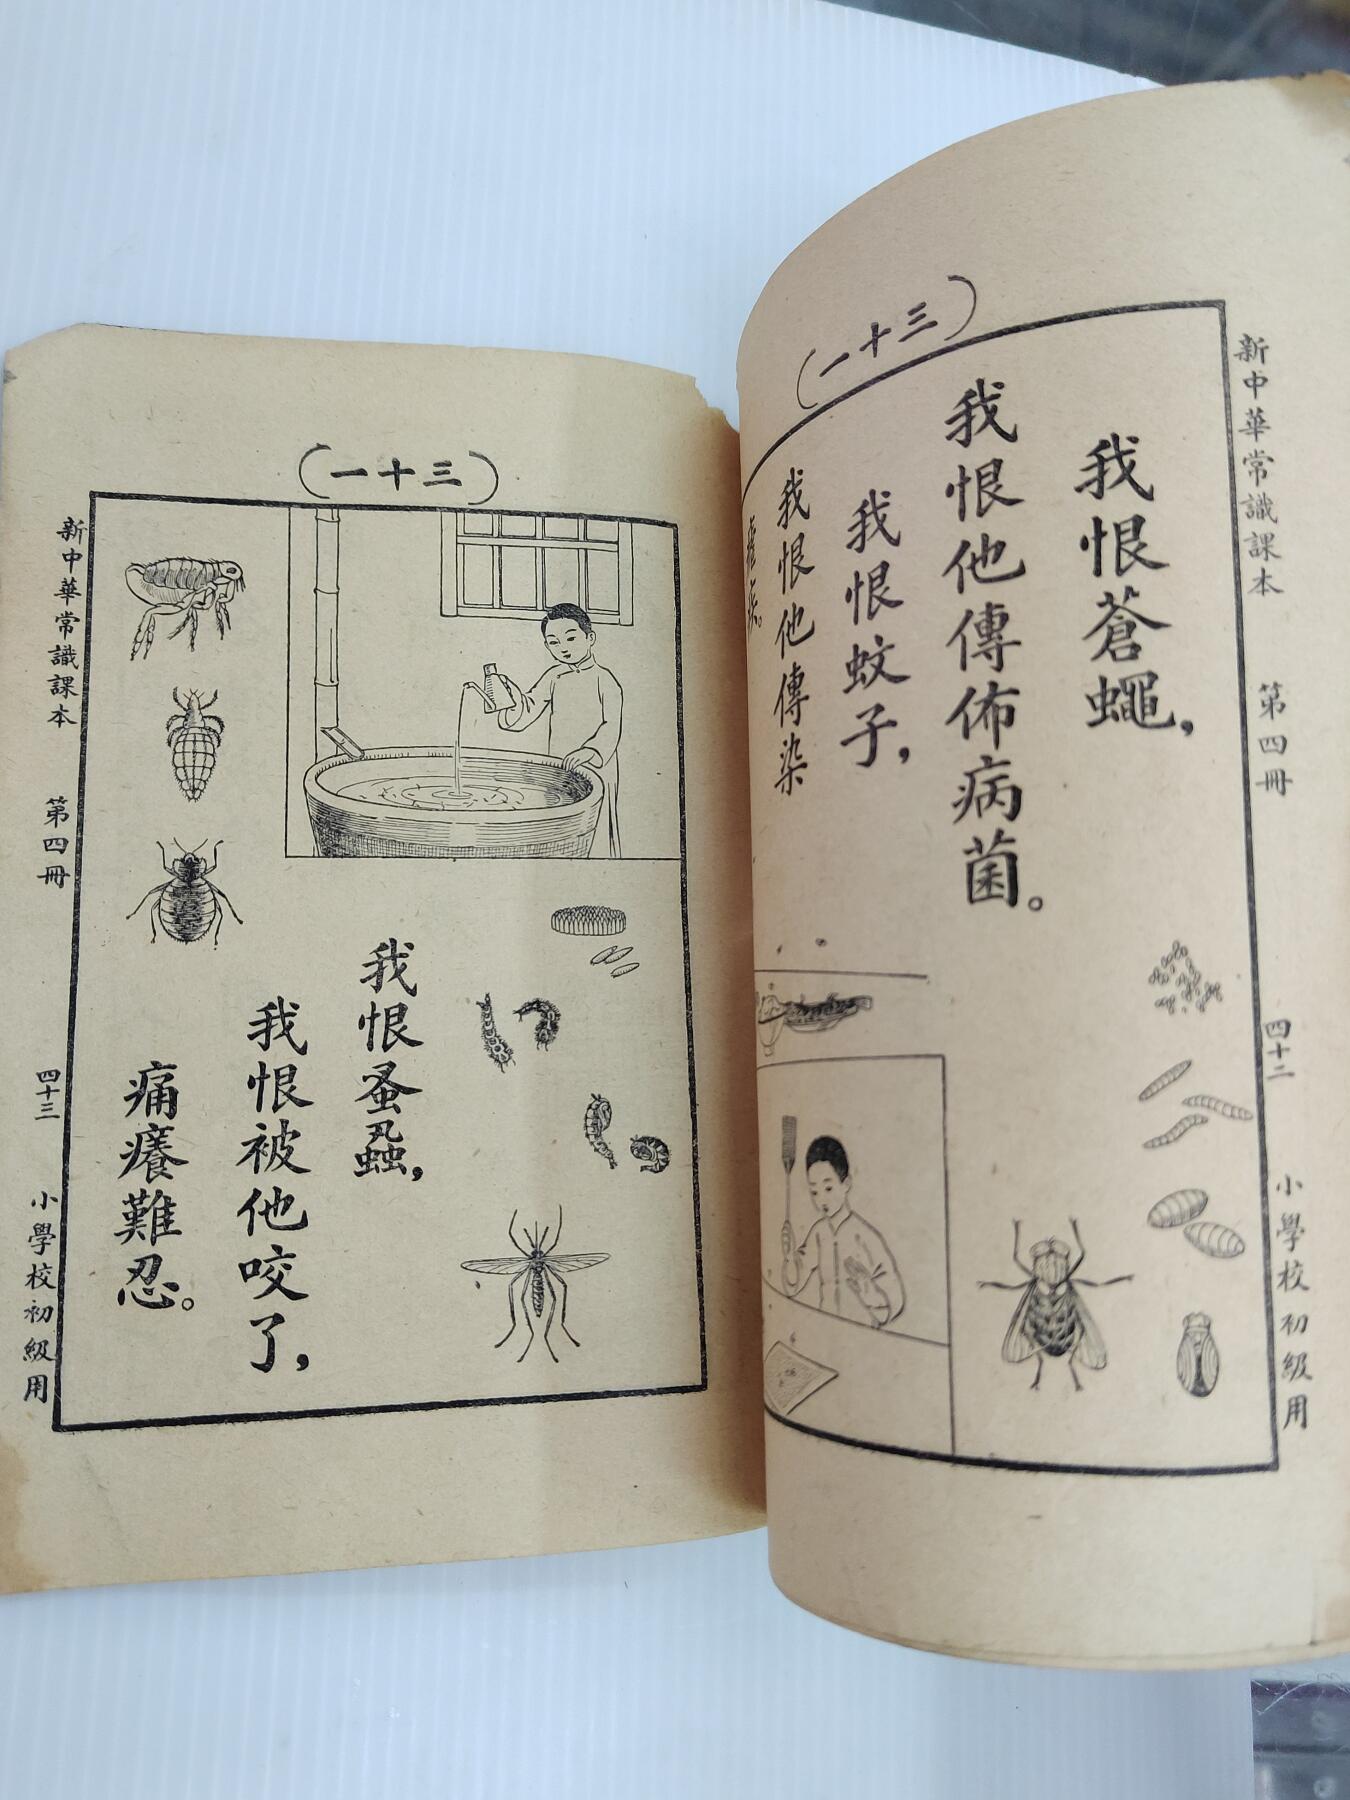 新中華常識課本 第四冊 四十二 小學校初級用
(三十一)
我恨蒼蠅，
我恨他傳佈病菌。
我恨蚊子，
我恨他傳染
瘧疾。
(三十一)
我恨蚤蝨，
我恨被他咬了，
痛癢難忍。
新中華常識課本 第四冊 四十三 小學校初級用